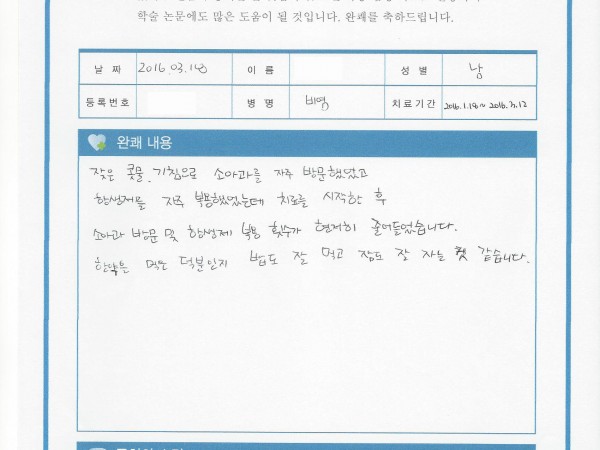 학술 논문에도 많은 도움이 될 것입니다. 완쾌를 축하드립니다.
날 짜 2016.03.18 이 름 성 별 남
등록번호 병 명 비염 치료기간 2016.1.18 ~ 2016.3.12
완쾌 내용
잦은 콧물, 기침으로 소아과를 자주 방문했었고
항생제를 자주 복용했었는데 치료를 시작한 후
소아과 방문 및 항생제 복용 횟수가 현저히 줄어들었습니다.
한약을 먹은 덕분인지 밥도 잘 먹고 잠도 잘 자는 것 같습니다.